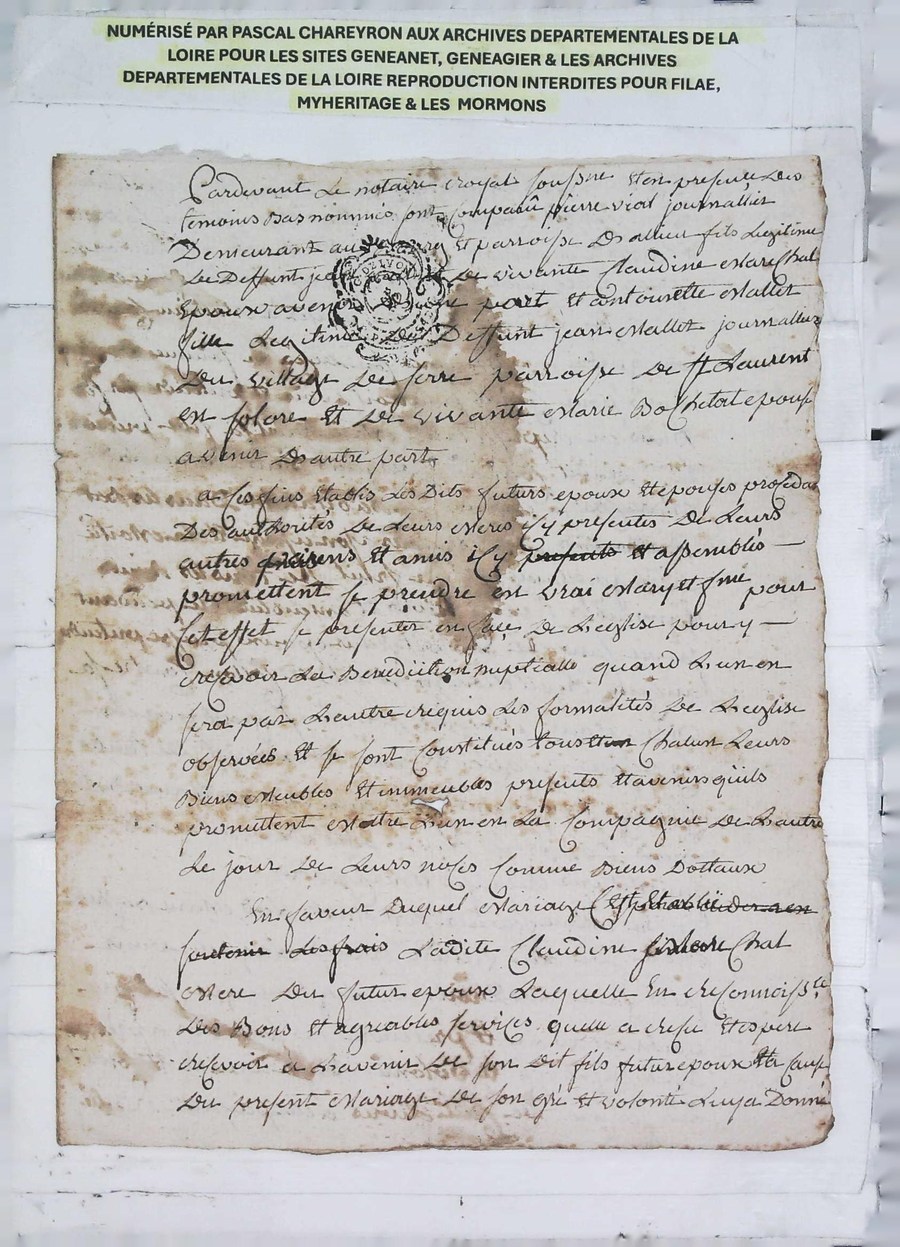 NUMÉRISÉ PAR PASCAL CHAREYRON AUX ARCHIVES DEPARTEMENTALES DE LA
LOIRE POUR LES SITES GENEANET, GENEAGIER & LES ARCHIVES
DEPARTEMENTALES DE LA LOIRE REPRODUCTION INTERDITES POUR FILAE,
MYHERITAGE & LES MORMONS
Pardevant Le notaire royal soussigné Et en presence des
temoins Bas nommés sont Comparû pierre vial journallier
Demeurant au Et parroisse D fils Legitime
De Deffunt Et De vivante Claudine Marechal
Epoux avenir part Et antoinette Mallet
fille Legitime De Deffunt jean Mallet journallier
Du village De serre parroisse De st Laurent
en solore Et De vivante Marie epouse
avenir D'autre part
a Ces fins Etablis Les Dits futurs epoux Et epouses
Des authorités De Leurs Meres icy presentes De Leurs
autres parens Et amis icy presents Et assemblés
promettent se prendre en vrai Mary et fme pour
Cet effet se presenter en face De L'eglise pour y
recevoir La Benediction nuptialle quand L'un en
sera par L'autre requis Les formalités De L'eglise
observées Et se sont Constitués tous Chacun Leurs
Biens Meubles Et immeubles presents Et avenirs qu'ils
promettent Metre L'un en La Compagnie De L'autre
Le jour De Leurs noces Comme Biens Dottaux
En faveur Duquel Mariage Est Etablie
soutenir Les frais Ladite Claudine Chal
Mere Du futur epoux Laquelle En reconnoissce
Des Bons Et agreables services quelle a receu Et espere
recevoir a L'avenir De son Dit fils futur epoux Et a Cause
Du present Mariage De son gré Et volonté Luy a Donné